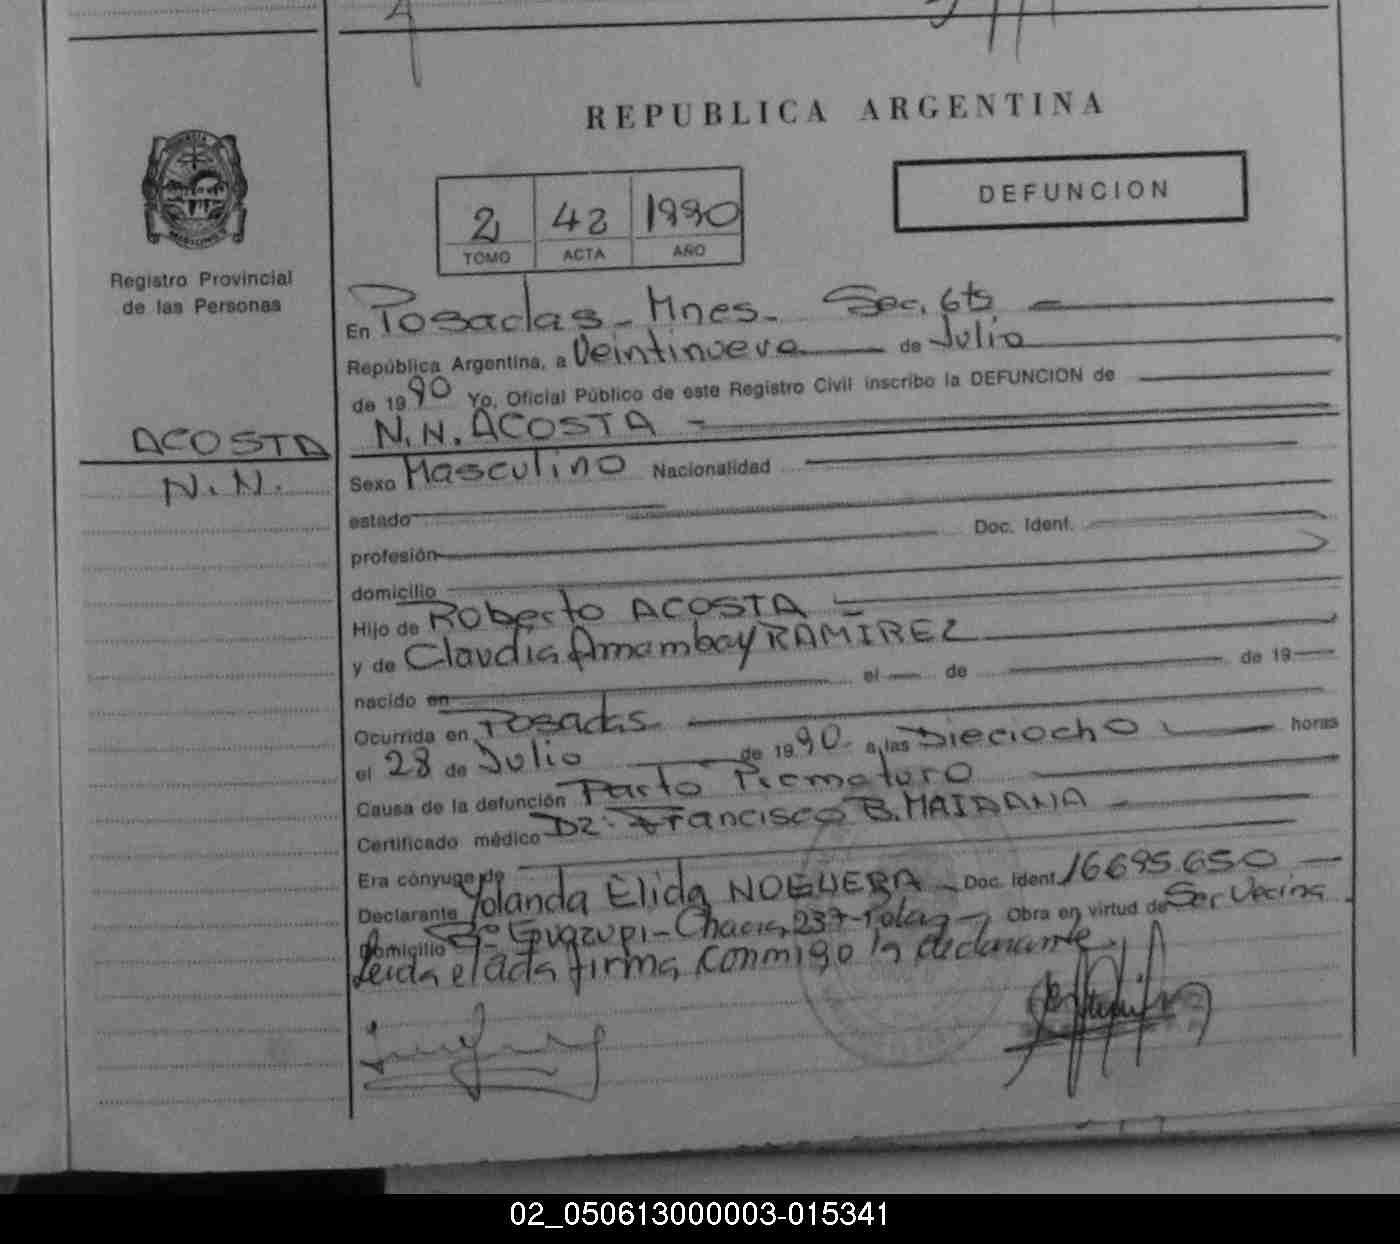 REPUBLICA ARGENTINA
DEFUNCION
2 42 1990
TOMO ACTA AÑO
Registro Provincial
de las Personas
En Posadas - Mnes - Sec. 6ta
República Argentina, a Veintinueve de Julio
de 1990 Yo, Oficial Público de este Registro Civil inscribo la DEFUNCION de
ACOSTA
N.N.
N.N. ACOSTA
Sexo Masculino Nacionalidad
estado
profesión Doc. Ident.
domicilio
Hijo de Roberto ACOSTA
y de Claudia Amambay RAMIREZ
nacido en el de de 19
Ocurrida en Posadas
el 28 de Julio de 1990 a las Dieciocho horas
Causa de la defunción Parto Prematuro
Certificado médico Dr: Francisco B. MAIDANA
Era cónyuge de
Declarante Yolanda Elida NOGUERA Doc. Ident. 16695.650
domicilio Bº Guazupi - Chacra 237 - Obra en virtud de Ser Vecina
Leida el acta firma conmigo la declarante
02_050613000003-015341